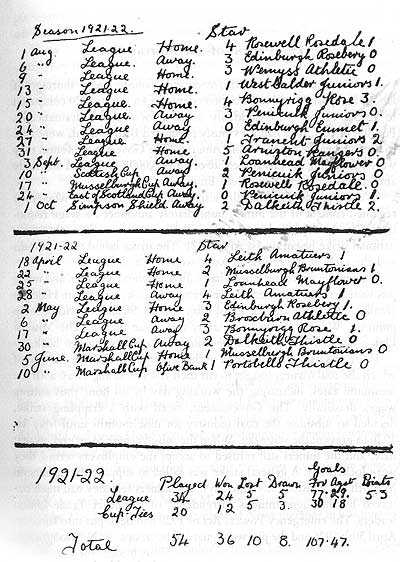 Season 1921-22. Star
1 Aug. League Home. 4 Rosewell Rosedale 1.
6 " League. Away. 3 Edinburgh Rosebery 0
9 " League Home. 3 Wemyss Athletic 0
13 " League Home. 1 West Calder Juniors 1.
15 " League. Home. 4 Bonnyrigg Rose 3.
20 " League. Away 3 Penicuik Juniors 0.
24 " League Away. 0 Edinburgh Emmet 1.
27 " League Home. 1 Tranent Juniors 2
31 " League Home. 5 Arniston Rangers 0
3 Sept. League Away. 1 Loanhead Mayflower 0
10 " Scottish Cup Away 2 Penicuik Juniors 0
17 " Musselburgh Cup Away. 1 Rosewell Rosedale. 0
24 " East of Scotland Cup Away 0 Penicuik Juniors 1
1 Oct Simpson Shield Away 2 Dalkeith Thistle 2.
1921-22 Star
18 April League Home 4 Leith Amateurs 1
22 " League Home 2 Musselburgh Bruntonians 1
25 " League Home 1 Loanhead Mayflower 0.
28 " League Away 4 Leith Amateurs 1
2 May League Home 3 Edinburgh Rosebery 1.
6 " League Away 2 Broxburn Athletic 0
17 " League Away 3 Bonnyrigg Rose 1.
30 " Marshall Cup Away 2 Dalkeith Thistle 0
5 June. Marshall Cup Home 1 Musselburgh Bruntonians 0
10 " Marshall Cup Olive Bank 1 Portobello Thistle 0
1921-22. Goals
Played Won Lost Drawn For Agst Points
League 34 24 5 5 77-29. 53
Cup-Ties 20 12 5 3. 30 18
Total 54 36 10 8. 107-47.